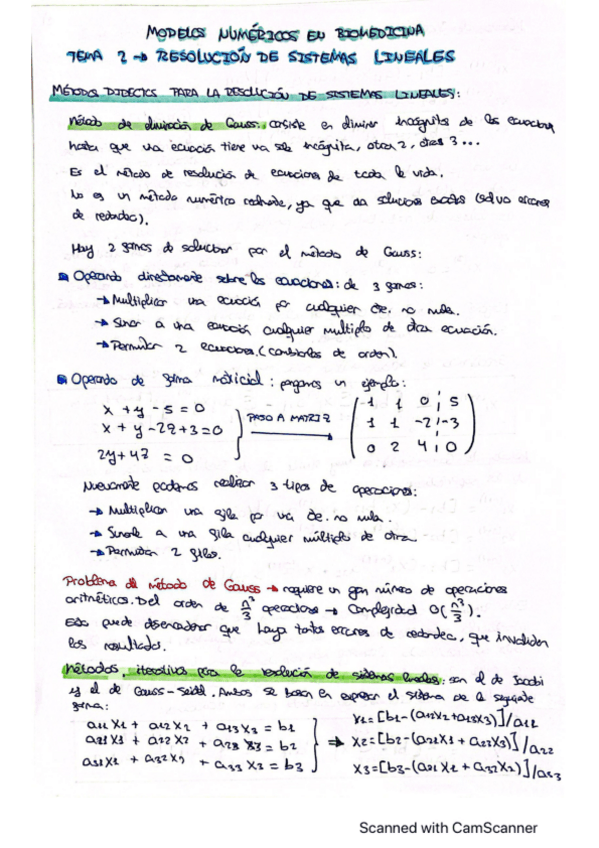 MODELOS NUMÉRICOS EN BIOMEDICINA
TEMA 2 → RESOLUCIÓN DE SISTEMAS LINEALES
MÉTODOS DIRECTOS PARA LA RESOLUCIÓN DE SISTEMAS LINEALES:
Método de eliminación de Gauss: consiste en eliminar incógnitas de las ecuaciones
hasta que una ecuación tiene una sola incógnita, otra 2, otras 3 ...
Es el método de resolución de ecuaciones de toda la vida.
No es un método numérico, ya que da soluciones exactas (salvo errores
de redondeo).
Hay 2 formas de solucionar por el método de Gauss:
Operando directamente sobre las ecuaciones: de 3 formas:
→ Multiplicar una ecuación por cualquier cte. no nula.
→ Sumar a una ecuación cualquier multiplo de otra ecuación.
→ Permutar 2 ecuaciones. (cambiarlas de orden).
Operando de forma matricial: pongamos un ejemplo:
x + y - 5 = 0
x + y - 2z + 3 = 0
2y + 4z = 0
PASO A MATRIZ
1 1 0 ¦ 5
1 1 -2 ¦ -3
0 2 4 ¦ 0
Nuevamente podemos realizar 3 tipos de operaciones:
→ Multiplicar una fila por una cte. no nula.
→ Sumarle a una fila cualquier múltiplo de otra.
→ Permutar 2 filas.
Problema del método de Gauss → requiere un gran número de operaciones
aritméticos. Del orden de n³/3 operaciones → Complejidad O(n³/3).
Esto puede desencadenar que haya tantos errores de redondeo, que invaliden
los resultados.
Métodos iterativos para la resolución de sistemas lineales: son el de Jacobi
y el de Gauss-Seidel. Ambos se basan en expresar el sistema de la siguiente
forma:
a11 x1 + a12 x2 + a13 x3 = b1
a21 x1 + a22 x2 + a23 x3 = b2
a31 x1 + a32 x2 + a33 x3 = b3
⇒
x1 = [b1 - (a12x2 + a13x3)]/a11
x2 = [b2 - (a21x1 + a23x3)]/a22
x3 = [b3 - (a31x1 + a32x2)]/a33
Scanned with CamScanner